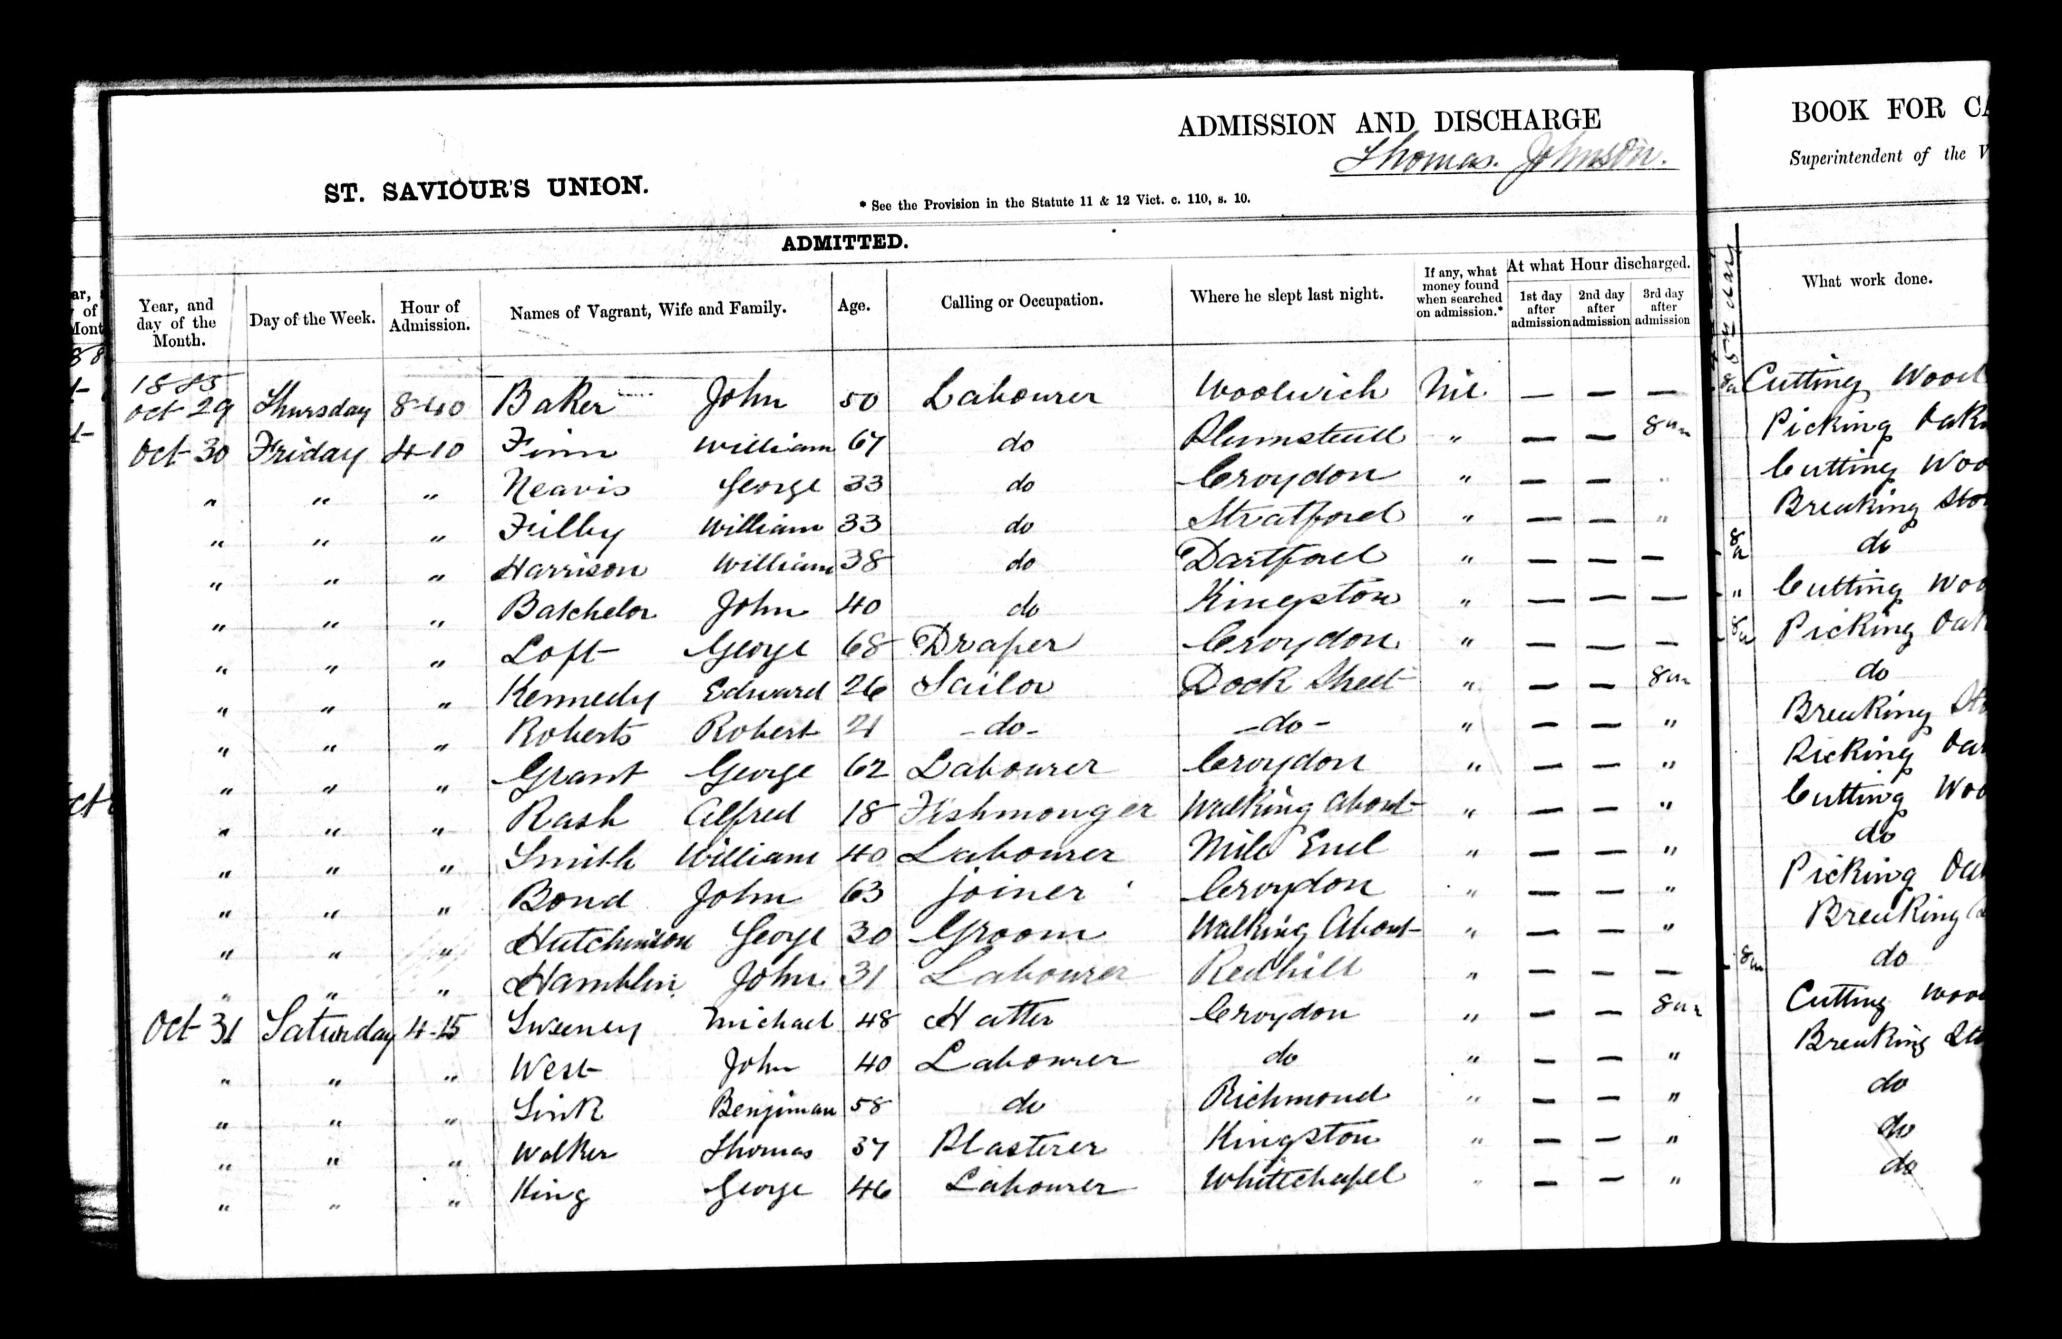 ADMISSION AND DISCHARGE
BOOK FOR CA
Thomas. Johnson.
Superintendent of the V
ST. SAVIOUR'S UNION.
* See the Provision in the Statute 11 & 12 Vict. c. 110, s. 10.
ADMITTED.
Year, and day of the Month. Day of the Week. Hour of Admission. Names of Vagrant, Wife and Family. Age. Calling or Occupation. Where he slept last night. If any, what money found when searched on admission.* At what Hour discharged. 1st day after admission 2nd day after admission 3rd day after admission What work done.
1885
Oct 29 Thursday 8-40 Baker John 50 Labourer Woolwich Nil — — — Cutting Wood
Oct 30 Friday 4-10 Finn William 67 do Plumstead " — — 8am Picking Oak
" " " Neavis George 33 do Croydon " — — " Cutting Woo
" " " Filby William 33 do Stratford " — — " Breaking Sto
" " " Harrison William 38 do Dartford " — — — 8a do
" " " Batchelor John 40 do Kingston " — — — " Cutting Woo
" " " Loft George 68 Draper Croydon " — — — 8a Picking Oak
" " " Kennedy Edward 26 Sailor Dock Street " — — 8am do
" " " Roberts Robert 21 -do- -do- " — — " Breaking Sto
" " " Grant George 62 Labourer Croydon " — — " Picking Oak
" " " Rash Alfred 18 Fishmonger Walking About " — — " Cutting Woo
" " " Smith William 40 Labourer Mile End " — — " do
" " " Bond John 63 Joiner Croydon " — — " Picking Oa
" " " Hutchinson George 30 Groom Walking About " — — " Breaking
" " " Hamblin John 31 Labourer Redhill " — — — 8am do
Oct 31 Saturday 4-15 Sweeney Michael 48 Hatter Croydon " — — 8am Cutting Wood
" " " West John 40 Labourer do " — — " Breaking Sto
" " " Sink Benjiman 58 do Richmond " — — " do
" " " Walker Thomas 37 Plasterer Kingston " — — " do
" " " King George 46 Labourer Whitechapel " — — " do